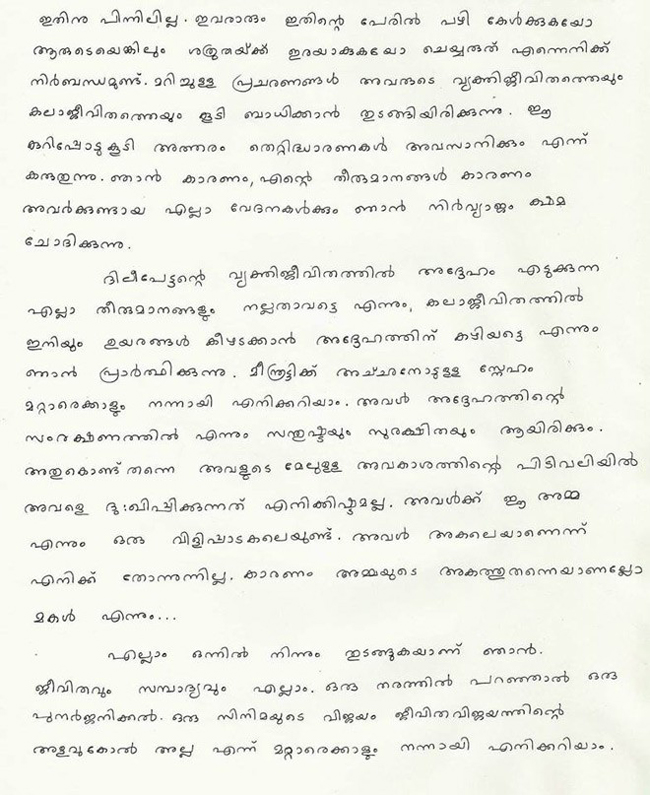 ഇതിനു പിന്നിലില്ല. ഇവരാരും ഇതിന്റെ പേരിൽ പഴി കേൾക്കുകയോ
ആരുടെയെങ്കിലും ശത്രുതയ്ക്ക് ഇരയാകുകയോ ചെയ്യരുത് എന്നെനിക്ക്
നിർബന്ധമുണ്ട്. മറിച്ചുള്ള പ്രചരണങ്ങൾ അവരുടെ വ്യക്തിജീവിതത്തെയും
കലാജീവിതത്തെയും കൂടി ബാധിക്കാൻ തുടങ്ങിയിരിക്കുന്നു. ഈ
കുറിപ്പോടുകൂടി അത്തരം തെറ്റിദ്ധാരണകൾ അവസാനിക്കും എന്ന്
കരുതുന്നു. ഞാൻ കാരണം, എന്റെ തീരുമാനങ്ങൾ കാരണം
അവർക്കുണ്ടായ എല്ലാ വേദനകൾക്കും ഞാൻ നിർവ്യാജം ക്ഷമ
ചോദിക്കുന്നു.
ദിലീപേട്ടന്റെ വ്യക്തിജീവിതത്തിൽ അദ്ദേഹം എടുക്കുന്ന
എല്ലാ തീരുമാനങ്ങളും നല്ലതാവട്ടെ എന്നും, കലാജീവിതത്തിൽ
ഇനിയും ഉയരങ്ങൾ കീഴടക്കാൻ അദ്ദേഹത്തിന് കഴിയട്ടെ എന്നും
ഞാൻ പ്രാർത്ഥിക്കുന്നു. മീനൂട്ടിക്ക് അച്ഛനോടുള്ള സ്നേഹം
മറ്റാരെക്കാളും നന്നായി എനിക്കറിയാം. അവൾ അദ്ദേഹത്തിന്റെ
സംരക്ഷണത്തിൽ എന്നും സന്തുഷ്ടയും സുരക്ഷിതയും ആയിരിക്കും.
അതുകൊണ്ട് തന്നെ അവളുടെ മേലുള്ള അവകാശത്തിന്റെ പിടിവലിയിൽ
അവളെ ദു:ഖിപ്പിക്കുന്നത് എനിക്കിഷ്ടമല്ല. അവൾക്ക് ഈ അമ്മ
എന്നും ഒരു വിളിപ്പാടകലെയുണ്ട്. അവൾ അകലെയാണെന്ന്
എനിക്ക് തോന്നുന്നില്ല. കാരണം അമ്മയുടെ അകത്തുതന്നെയാണല്ലോ
മകൾ എന്നും...
എല്ലാം ഒന്നിൽ നിന്നും തുടങ്ങുകയാണ് ഞാൻ.
ജീവിതവും സമ്പാദ്യവും എല്ലാം. ഒരു തരത്തിൽ പറഞ്ഞാൽ ഒരു
പുനർജനിക്കൽ. ഒരു സിനിമയുടെ വിജയം ജീവിതവിജയത്തിന്റെ
അളവുകോൽ അല്ല എന്ന് മറ്റാരെക്കാളും നന്നായി എനിക്കറിയാം.